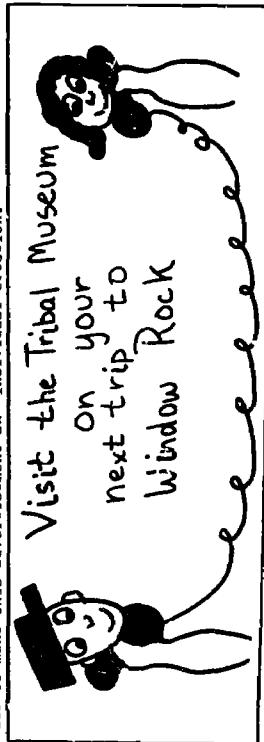 Visit the Tribal Museum
on your
next trip to
Window Rock